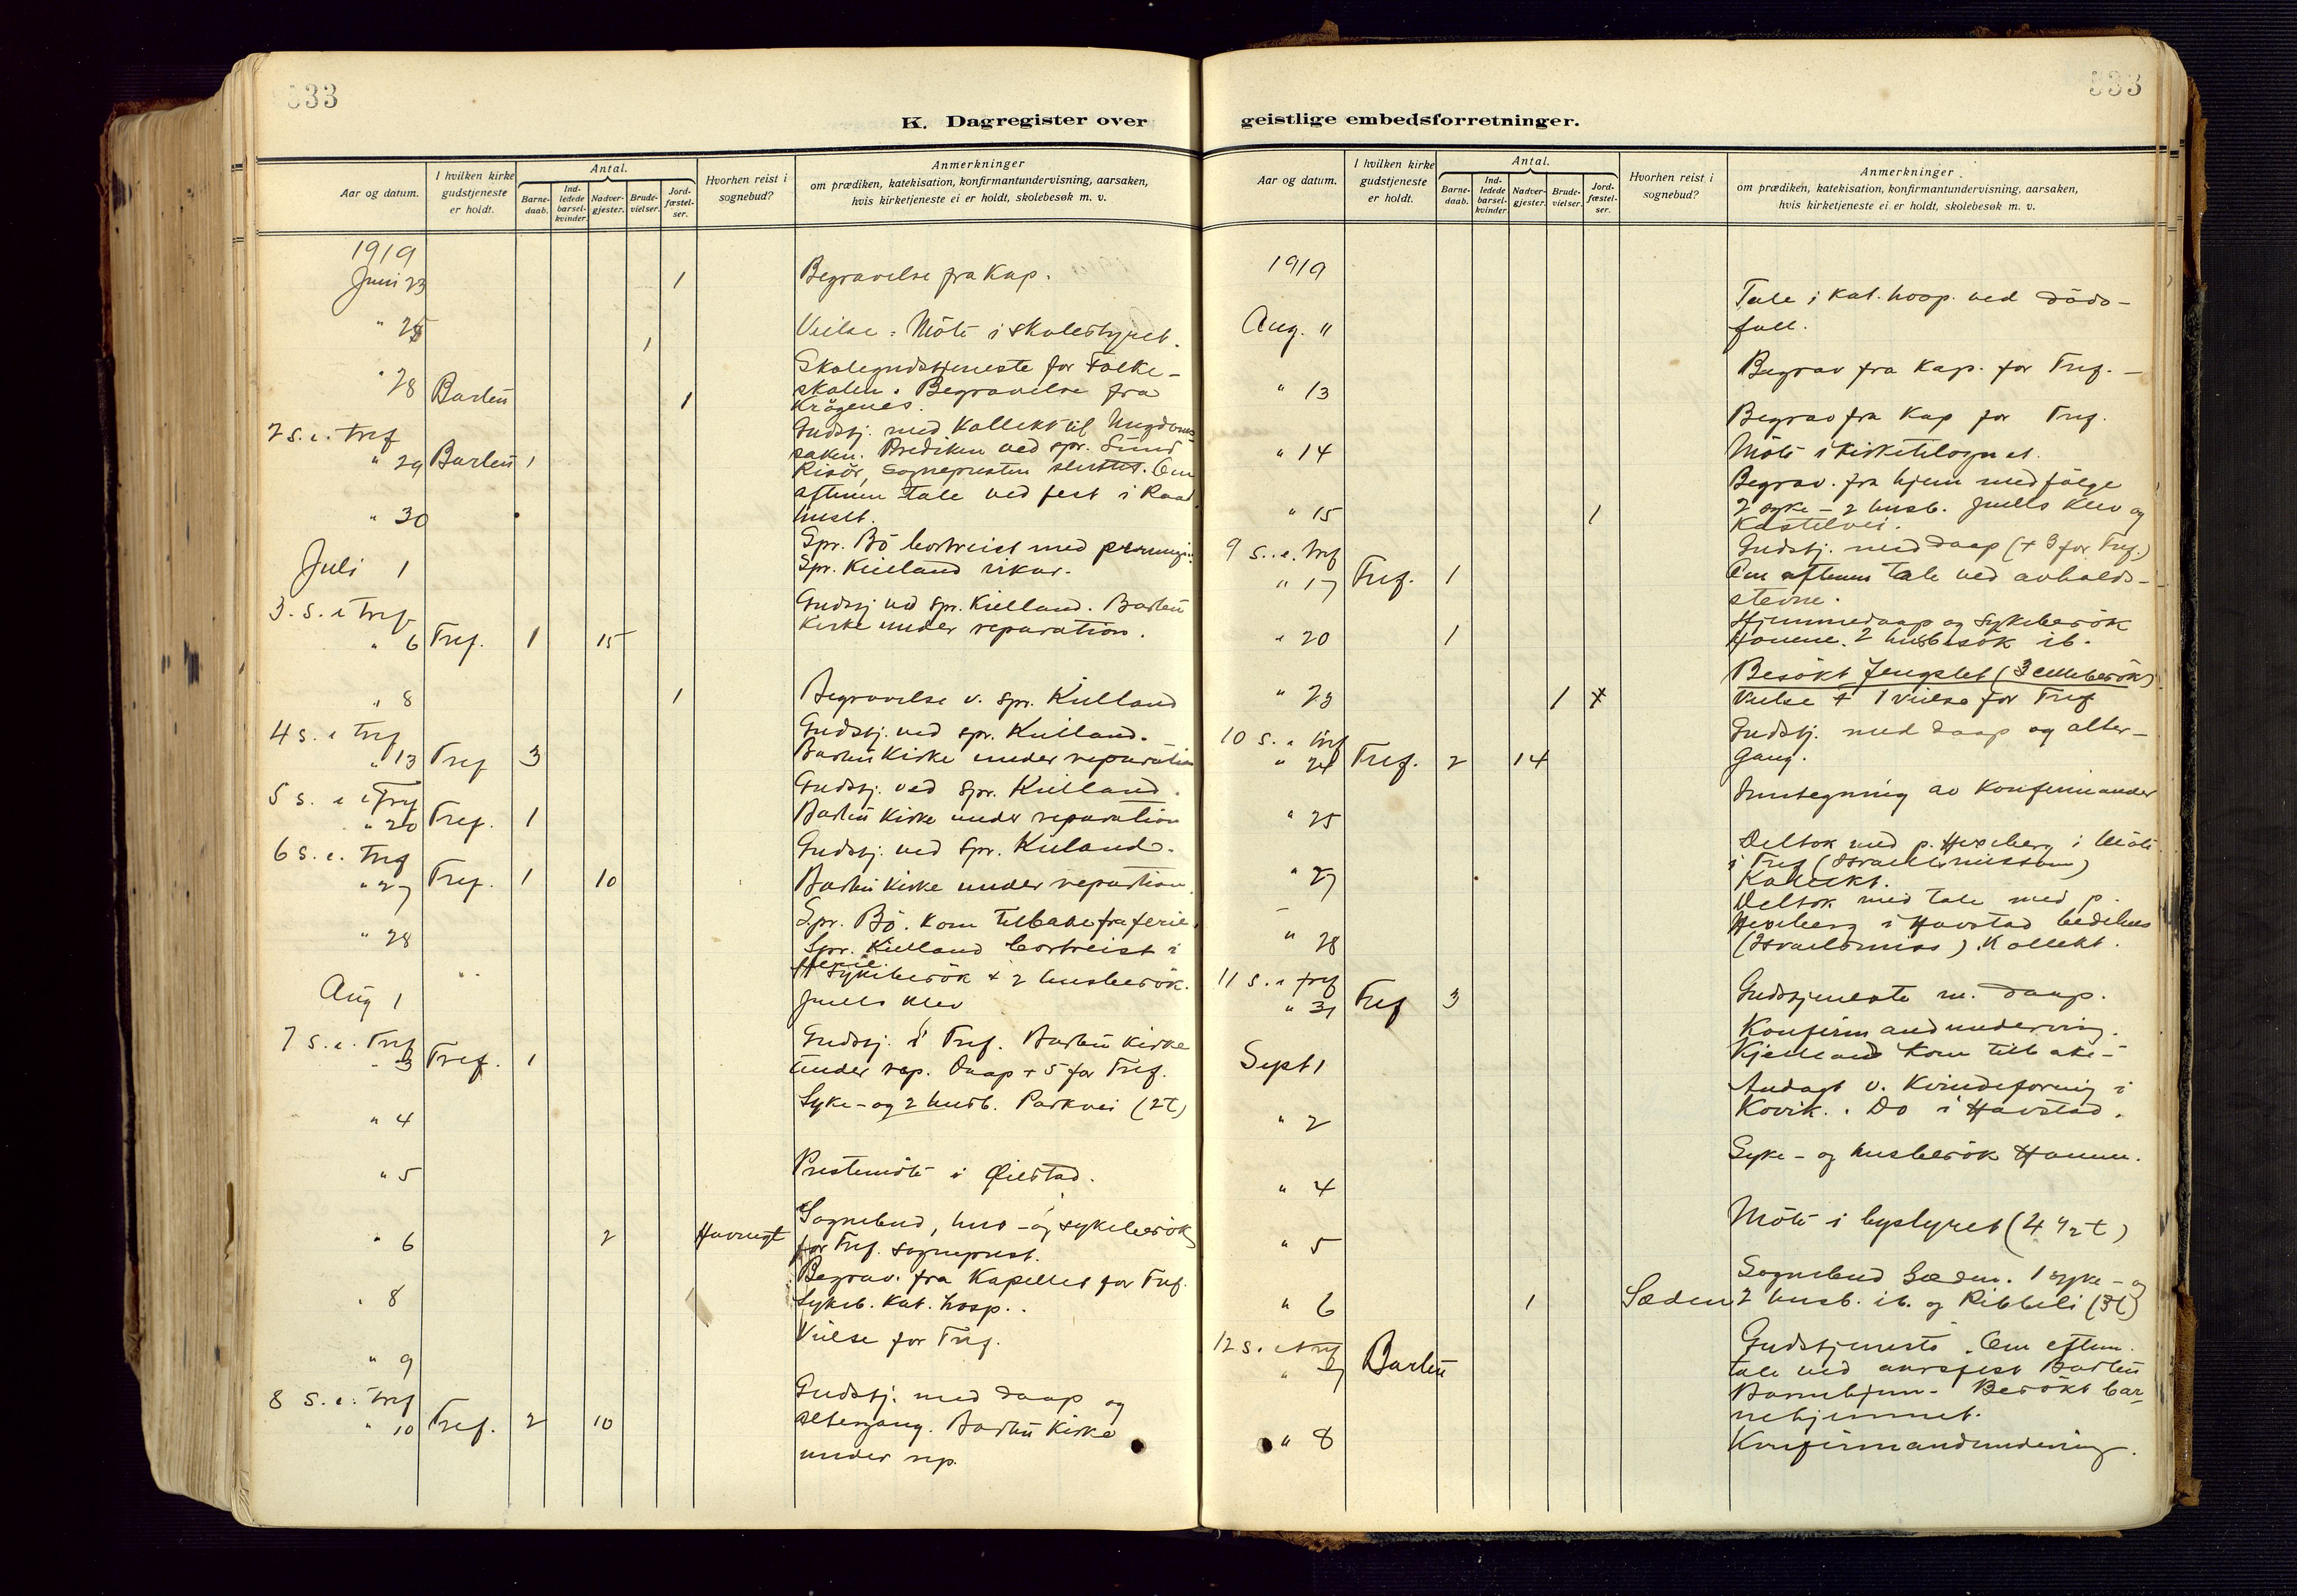 333
K. Dagregister over
Aar og datum.
I hvilken kirke gudstjeneste er holdt.
Antal.
Barnedaab.
Indledede barselkvinder.
Nadvergjester.
Brudevielser.
Jordfæstelser.
Hvorhen reist i sognebud?
Anmerkninger
om prædiken, katekisation, konfirmantundervisning, aarsaken,
hvis kirketjeneste ei er holdt, skolebesøk m. v.
1919
Juni 23 1 Begravelse fra Kap.
" 25 1 Vielse. Möte i skolestyret.
" 28 Barbu 1 Skolegudstjeneste for Folke-
skolen. Begravelse fra
Krögenes.
2 s. e. tref
" 29 Barbu 1 Gudstj. med Kollekt til Ungdoms
saken. Prediken ved spr. Sund
Risör, sognepresten sluttet. Om
aftenen tale ved fest i Raad
huset.
" 30
Juli 1 Spr. Bö bortreist med
Spr. Kielland vikar.
3. s. e Tref
" 6 Tref. 1 15 Gudstj ved spr. Kielland. Barbu
Kirke under reparation.
" 8 1 Begravelse v. spr. Kielland
4 s. e Tref
" 13 Tref 3 Gudstj. ved spr. Kielland.
Barbu Kirke under reparation
5 s. e Tref
" 20 Tref. 1 Gudstj. ved spr. Kielland.
Barbu Kirke under reparation
6 s. e. Tref
" 27 Tref. 1 10 Gudstj. ved spr. Kieland.
Barbu Kirke under repartion.
" 28 Spr. Bö. kom tilbake fra ferie.
Spr. Kielland bortreist i
ferie.
Aug 1 sykebesök + 2 husbesök.
Juells Klev
7 s. e. Tref
" 3 Tref. 1 Gudstj. i Tref. Barbu Kirke
under rep. Daap + 5 for Tref.
" 4 Syke- og 2 husb. Parkvei (2t)
" 5 Prestemöte i Øiestad.
" 6 2 Sognebud, hus- og sykebesök
for Tref. sogneprest.
" 8 Begrav. fra Kapellet for Tref.
Sykeb. Kat. hosp.
" 9 Vielse for Tref.
8 s. e. Tref
" 10 Tref. 2 10 Gudstj. med daap og
altergang. Barbu Kirke
under rep.
333
geistlige embedsforretninger.
Aar og datum.
I hvilken kirke gudstjeneste er holdt.
Antal.
Barnedaab.
Indledede barselkvinder
Nadvergjester.
Brudevielser.
Jordfæstelser.
Hvorhen reist i sognebud?
Anmerkninger.
om prædiken, katekisation, konfirmantundervisning, aarsaken,
hvis kirketjeneste ei er holdt, skolebesøk m. v.
1919
Aug. 11 Tale i Kat. hosp. ved döds-
fall.
" 13 Begrav fra Kap. for Tref. -
" 14 Begrav fra Kap for Tref.
Möte i kirketilsynet.
" 15 1 Begrav. fra hjem med fölge
2 syke - 2 husb. Juells Klev og
Kastelvei.
9 s. e. tref
" 17 Tref. 1 Gudstj. med daap (+ 3 for Tref.)
Om aftenen tale ved avholds-
stevne.
" 20 1 Hjemmedaap og sykebesök
2 husbesök ib.
" 23 1 Besökt fengslet (3 cellebesök)
Vielse + 1 vielse for Tref
10 s. e tref
" 24 Tref. 2 14 Gudstj. med daap og alter-
gang.
" 25 Inntegning av Konfirmander
" 27 Deltok med p. Hexeberg i Möte
i Tref (Israelsmissionen)
Kollekt.
" 28 Deltok med tale med p.
Hexeberg i Havstad bedehus
(Israelsmiss). Kollekt.
11 s. e tref
" 31 Tref 3 Gudstjeneste m. daap.
Sept 1 Konfirmandundervisn.
Kjelland kom tilbake -
" 2 Andagt v. Kvindeforning i
Kovik. Do i Havstad.
" 4 Syke- og husbesök
" 5 Möte i bystyret (4 1/2 t)
" 6 1 Sæden Sognebud Sæden. 1 syke- og
2 husb. ib. og (3t)
12 s. e tref
" 7 Barbu Gudstjeneste. Om eftem.
tale ved aarsfest Barbu
Barnehjem. Besökt bar-
nehjemmet.
" 8 Konfirmandundervisning.